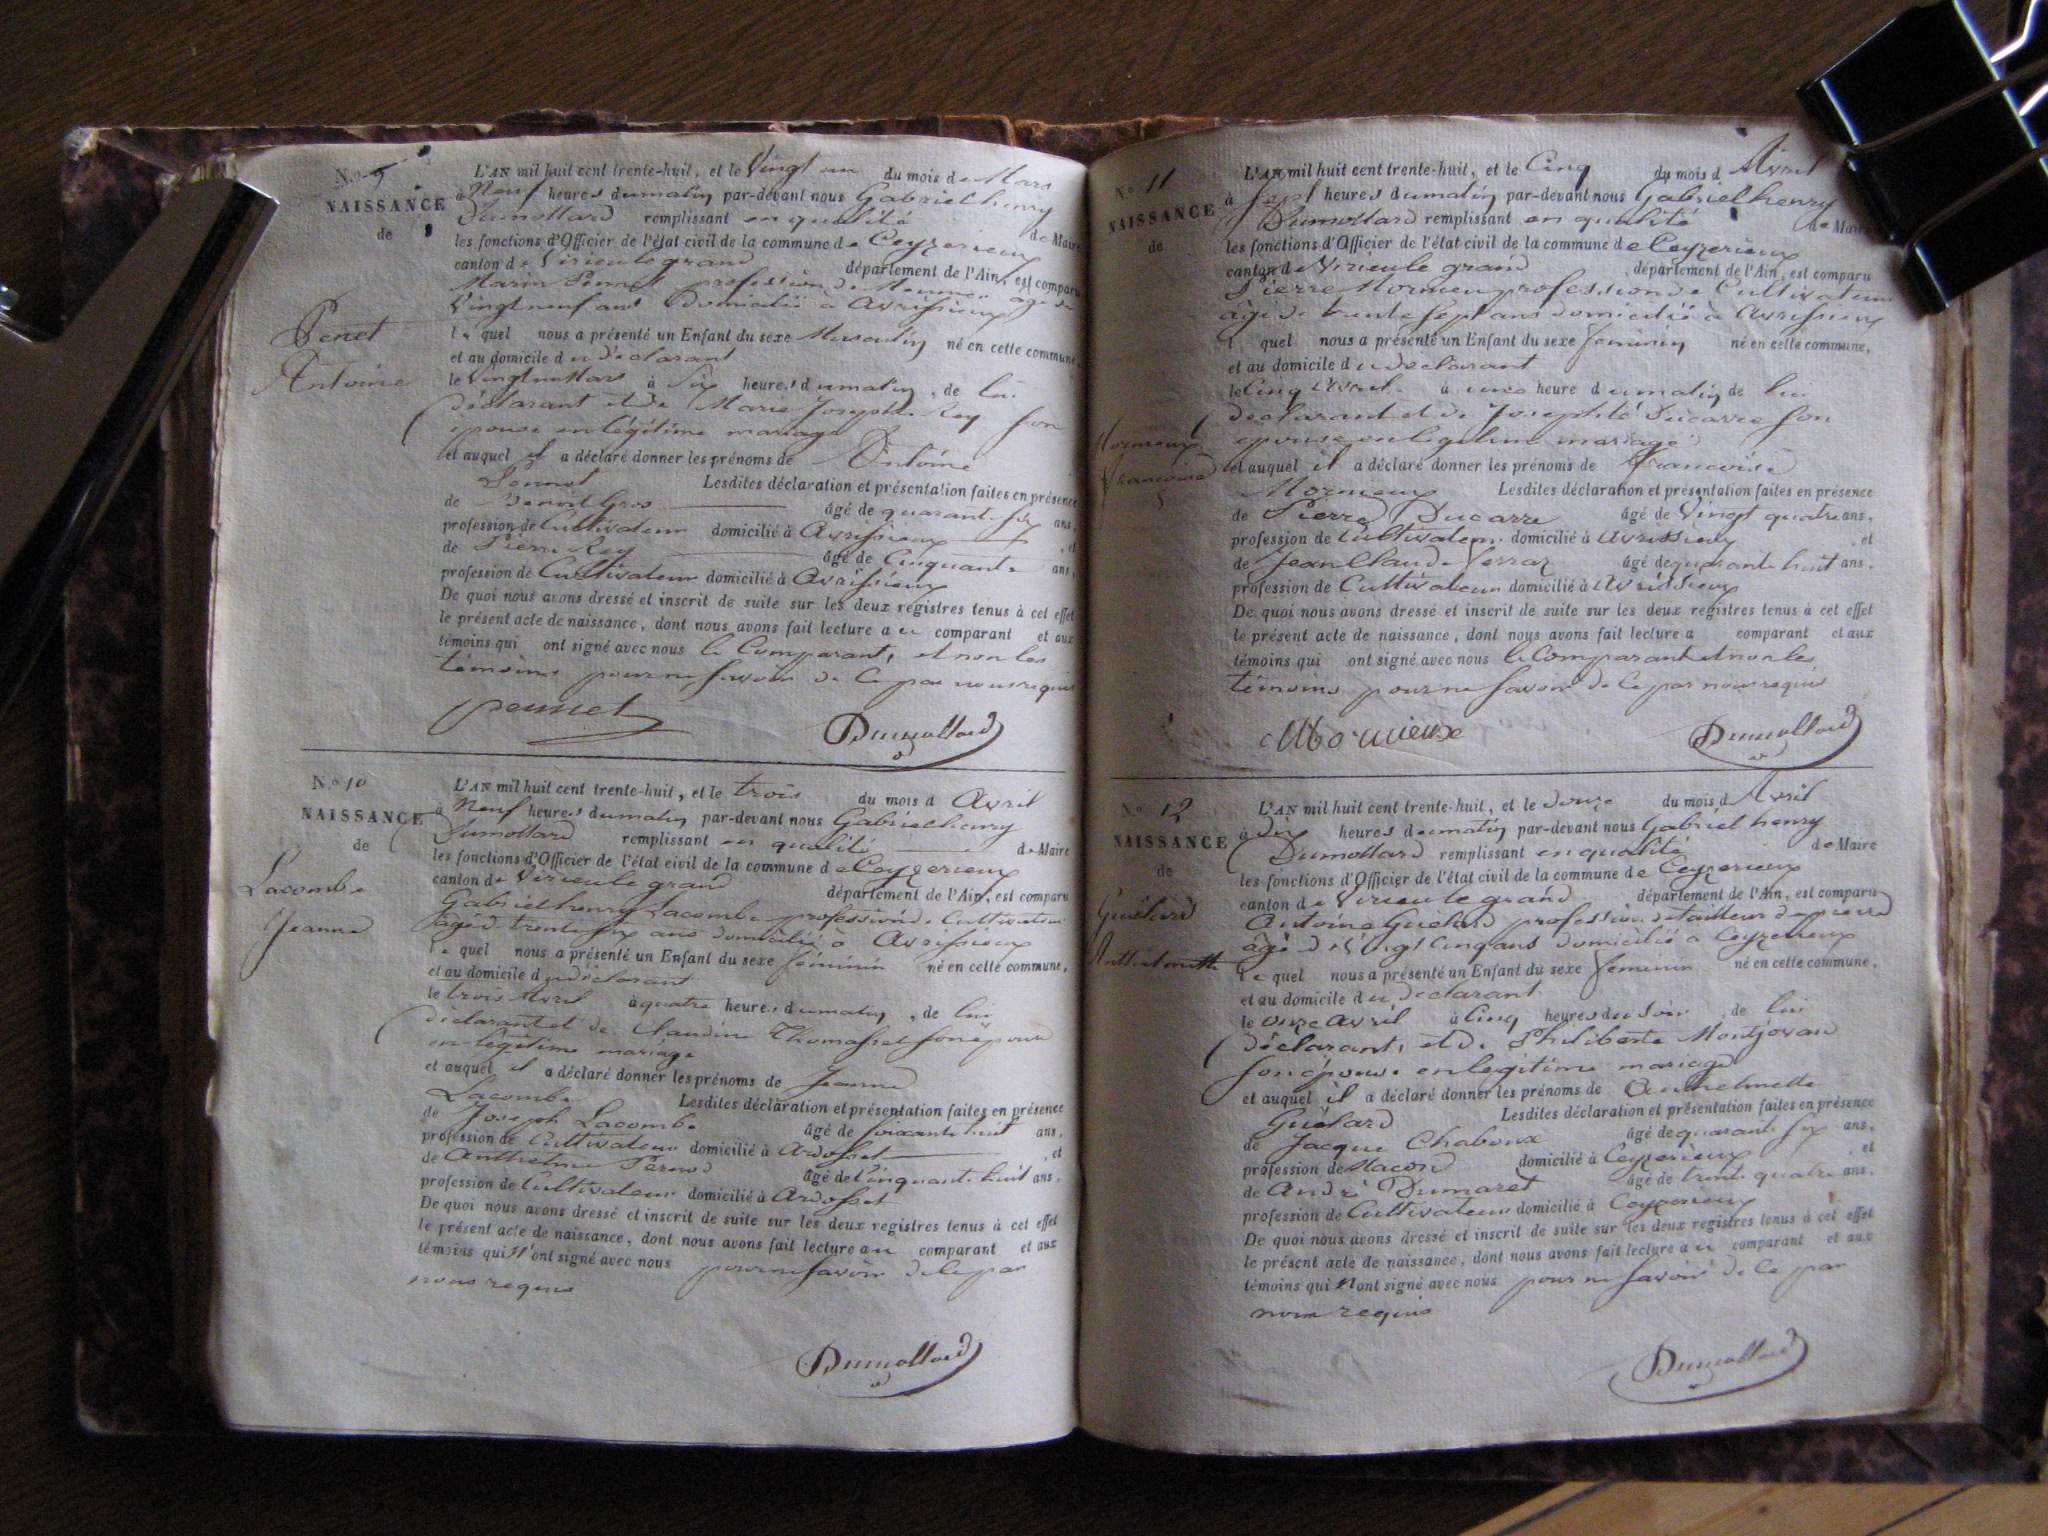 No 9
NAISSANCE
de
Penet
Antoine
L'AN mil huit cent trente-huit, et le Vingt un du mois de Mars
à Neuf heures du matin par-devant nous Gabriel henry
Dumollard remplissant en qualité de Maire
les fonctions d'Officier de l'état civil de la commune de Ceyzerieux
canton de Virieu le grand département de l'Ain, est comparu
Marin Pennet profession de age de
Vingt neuf ans domicilié a Avrissieux
le quel nous a présenté un Enfant du sexe Masculin né en cette commune,
et au domicile du declarant
le Vingt un Mars à Six heures du matin, de lui
déclarant et de Marie Josephte Rey son
epouse en légitime mariage
et auquel il a déclaré donner les prénoms de Antoine
Pennet Lesdites déclaration et présentation faites en présence
de Benoit Gros âgé de quarante six ans,
profession de Cultivateur domicilié à Avrissieux , et
de Pierre Rey âgé de Cinquante ans,
profession de Cultivateur domicilié à Avrissieux
De quoi nous avons dressé et inscrit de suite sur les deux registres tenus à cet effet
le présent acte de naissance, dont nous avons fait lecture au comparant et aux
témoins qui ont signé avec nous le Comparant, et non les
témoins pour ne savoir de Ce par nous requis
Pennet Dumollard
No 10
NAISSANCE
de
Lacombe
Jeanne
L'AN mil huit cent trente-huit, et le trois du mois d Avril
à Neuf heures du matin par-devant nous Gabriel henry
Dumollard remplissant en qualité de Maire
les fonctions d'Officier de l'état civil de la commune de Ceyzerieux
canton de Virieu le grand département de l'Ain, est comparu
Gabriel henry Lacombe profession de Cultivateur
age de trente six ans domicilié à Avrissieux
le quel nous a présenté un Enfant du sexe féminin né en cette commune,
et au domicile du déclarant
le trois Avril à quatre heures du matin, de lui
déclarant et de Claudine Thomasset son épouse
en légitime mariage
et auquel il a déclaré donner les prénoms de Jeanne
Lacombe Lesdites déclaration et présentation faites en présence
de Joseph Lacombe âgé de soixante huit ans,
profession de Cultivateur domicilié à Ardosset , et
de Anthelme Pernod âgé de Cinquante huit ans,
profession de Cultivateur domicilié à Ardosset
De quoi nous avons dressé et inscrit de suite sur les deux registres tenus à cet effet
le présent acte de naissance, dont nous avons fait lecture au comparant et aux
témoins qui n'ont signé avec nous pour ne savoir de Ce par
nous requis
Dumollard
No 11
NAISSANCE
de
Mornieux
Francoise
L'AN mil huit cent trente-huit, et le Cinq du mois d Avril
à Sept heures du matin par-devant nous Gabriel henry
Dumollard remplissant en qualité de Maire
les fonctions d'Officier de l'état civil de la commune de Ceyzerieux
canton de Virieu le grand département de l'Ain, est comparu
Pierre Mornieux profession de Cultivateur
âgé de trente sept ans domicilié à Avrissieux
l quel nous a présenté un Enfant du sexe féminin né en cette commune,
et au domicile du declarant
le Cinq Avril à une heure du matin de lui
declarant et de Josephte Ducarre son
epouse en légitime mariage
et auquel il a déclaré donner les prénoms de Francoise
Mornieux Lesdites déclaration et présentation faites en présence
de Pierre Ducarre âgé de Vingt quatre ans,
profession de Cultivateur domicilié à Avrissieux , et
de Jean Claude Verraz âgé de quarante huit ans,
profession de Cultivateur domicilié à Avrissieux
De quoi nous avons dressé et inscrit de suite sur les deux registres tenus à cet effet
le présent acte de naissance, dont nous avons fait lecture a comparant et aux
témoins qui ont signé avec nous le Comparant et non les
témoins pour ne Savoir de Ce par nous requis
Mornieux Dumollard
No 12
NAISSANCE
de
Guélard
Anthelmette
L'AN mil huit cent trente-huit, et le douze du mois d Avril
à dix heures du matin par-devant nous Gabriel henry
Dumollard remplissant en qualité de Maire
les fonctions d'Officier de l'état civil de la commune de Ceyzerieux
canton de Virieu le grand département de l'Ain, est comparu
Antoine Guélard profession de tailleur de pierre
âgé de Vingt Cinq ans domicilié a Ceyzerieux
le quel nous a présenté un Enfant du sexe féminin né en cette commune,
et au domicile du declarant
le onze Avril à Cinq heures du soir de lui
déclarant, et de Philiberte Montjovan
son épouse en légitime mariage
et auquel il a déclaré donner les prénoms de Anthelmette
Guélard Lesdites déclaration et présentation faites en présence
de Jacque Chaboux âgé de quarante six ans,
profession de Macon domicilié à Ceyzerieux , et
de André Dumaret âgé de trente quatre ans,
profession de Cultivateur domicilié à Ceyzerieux
De quoi nous avons dressé et inscrit de suite sur les deux registres tenus à cet effet
le présent acte de naissance, dont nous avons fait lecture au comparant et aux
témoins qui n ont signé avec nous pour ne Savoir de Ce par
nous requis
Dumollard